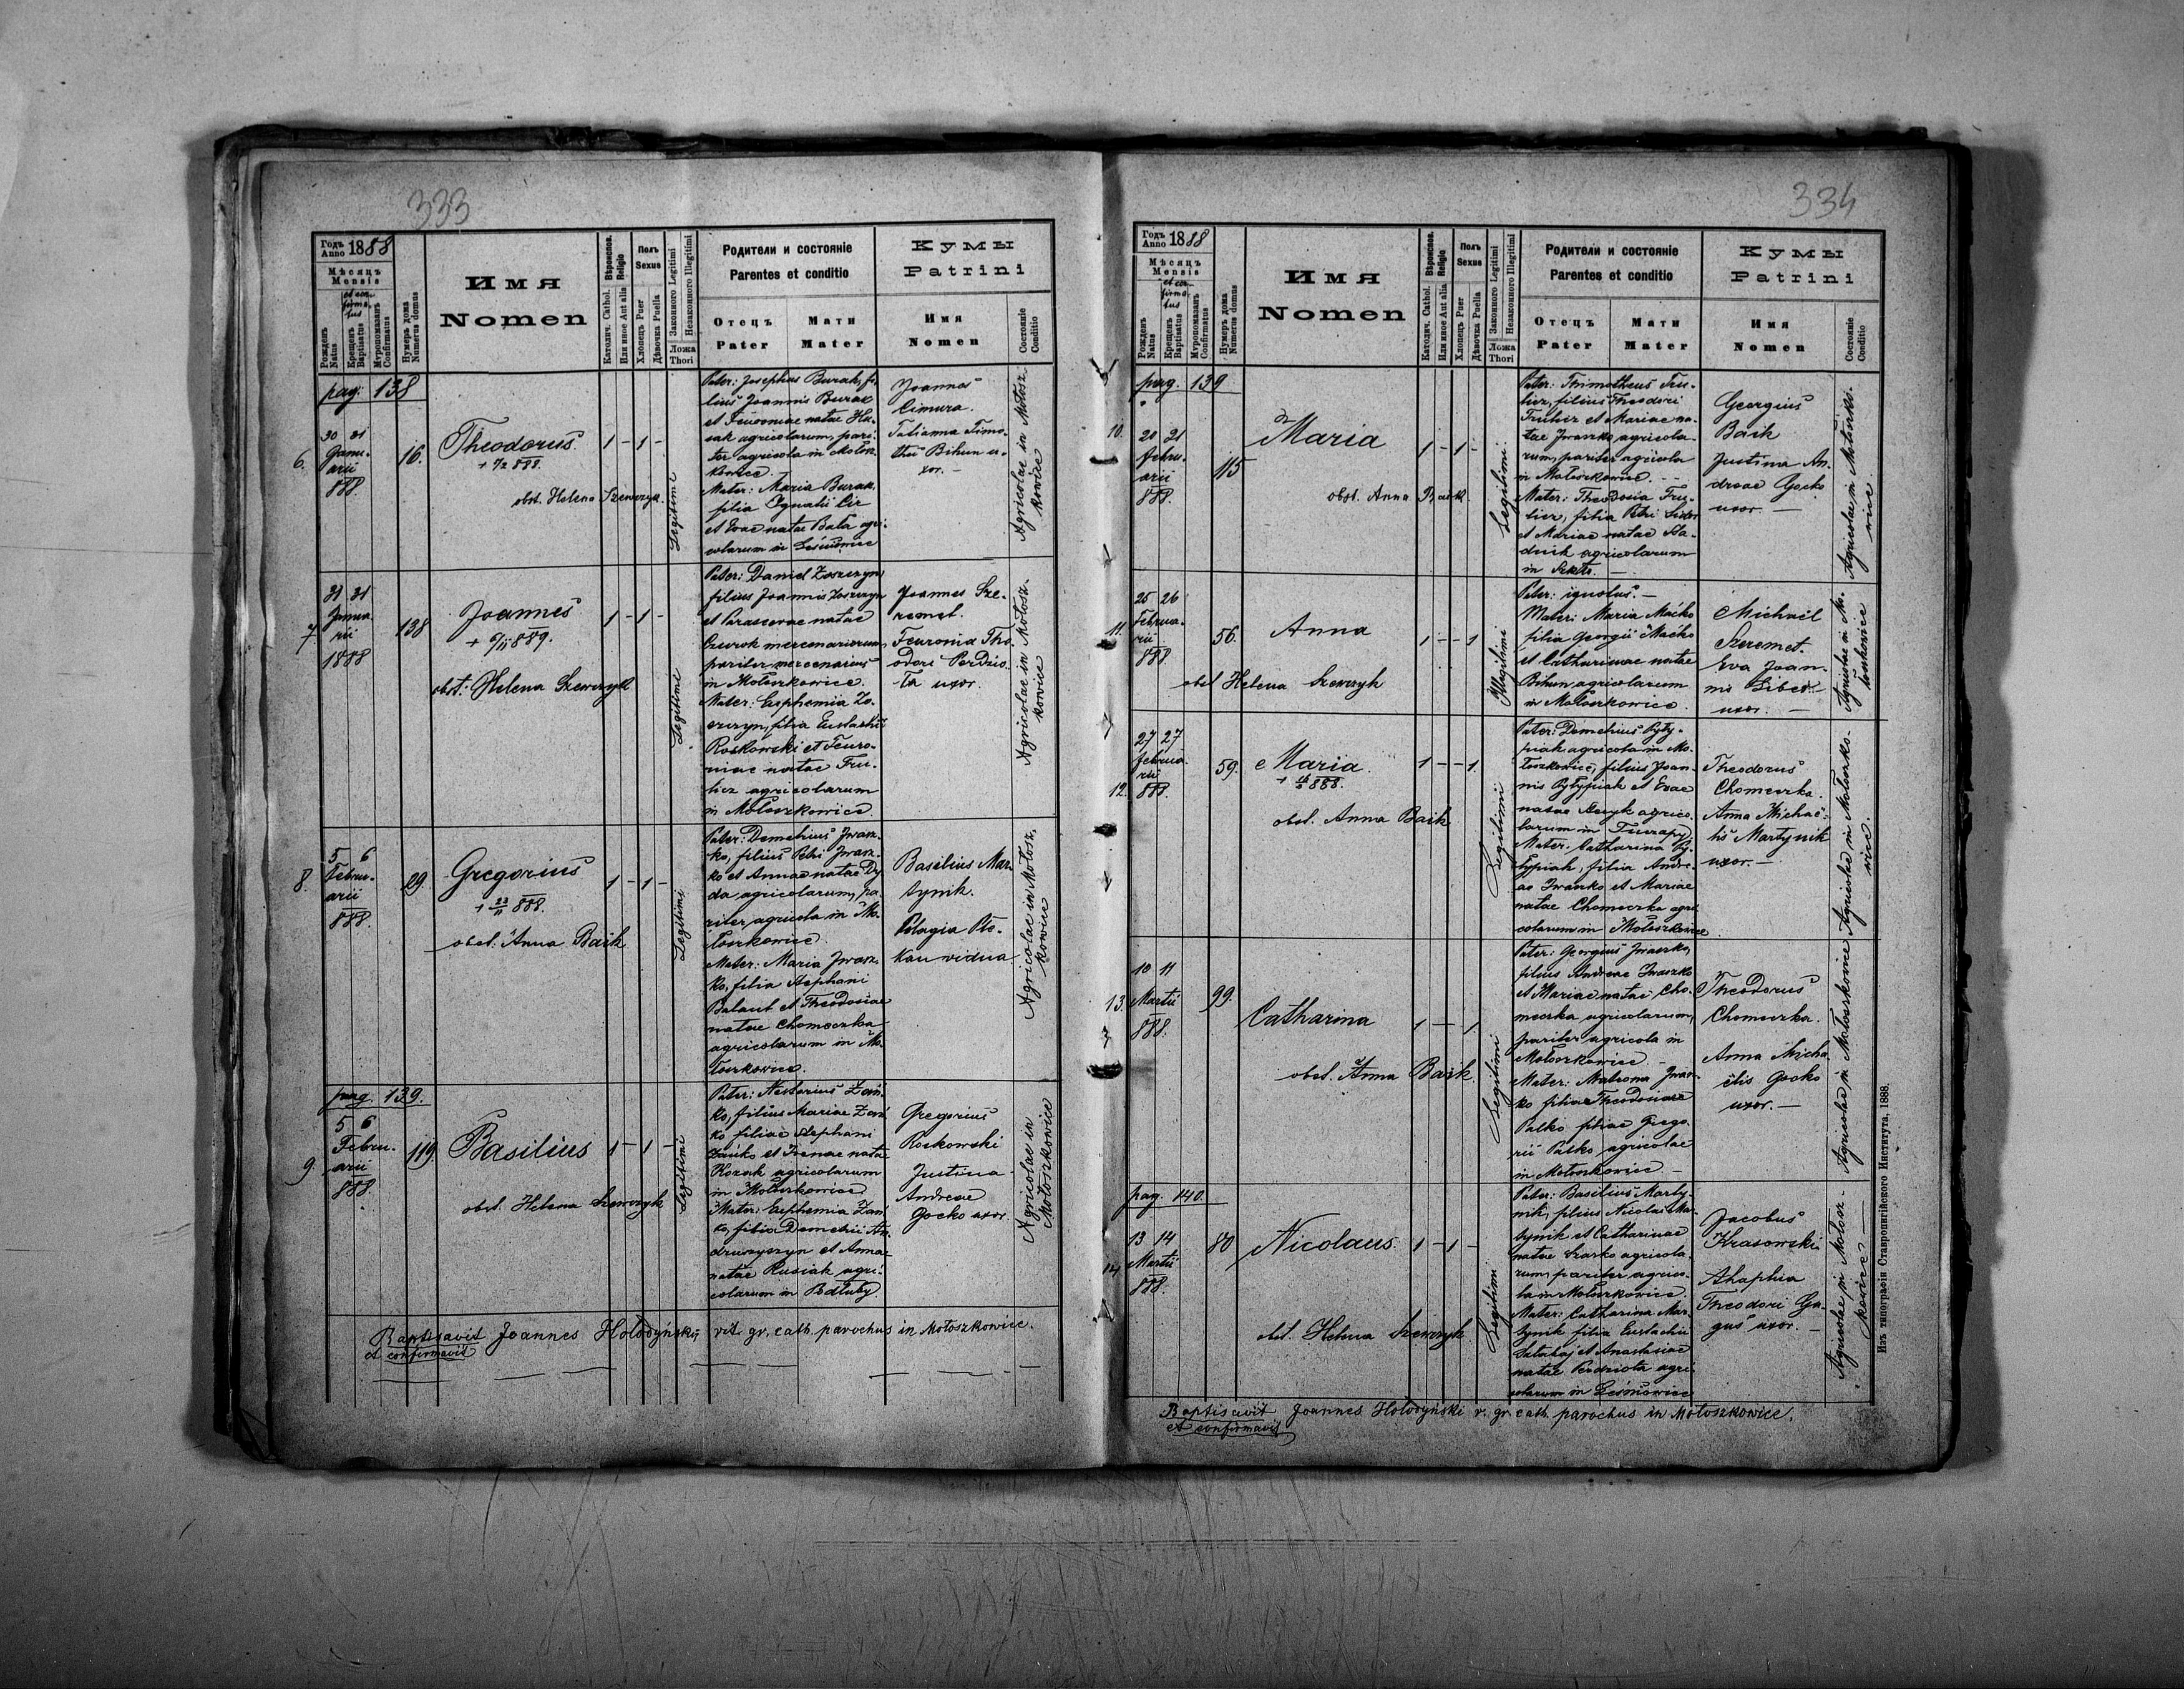 333
Годъ 1888
Anno
Мѣсяцъ
Mensis
Рожденъ
Natus
et confirmatus
Крещенъ
Baptisatus
Мѵропомазанъ
Confirmatus
Нумеръ дома
Numerus domus
Имя
Nomen
Вѣроисповѣ.
Religio
Католич. Cathol.
Или иное Aut alia
Полъ
Sexus
Хлопецъ Puer
Дѣвочка Puella
Законного Legitimi
Незаконного Illegitimi
Ложа
Thori
Родители и состояніе
Parentes et conditio
Отецъ
Pater
Мати
Mater
Кумы
Patrini
Имя
Nomen
Состояніе
Conditio
pag. 138
6.
30 31
Janu-
arii
888.
16.
Theodorus
obst. Helena Szewczyk
1 - 1 -
Legitimi
Pater: Josephus Burak, fi-
lius Joannis Burak
et Feuroniae natae
agricolarum, pari-
ter agricola in Mołosz-
kowice.
Mater: Maria Burak,
filia Ignatii Cir
et Evae natae Bała agri-
colarum in Leśniowice
Joannes
Cimura.
Tatianna Timo-
thei Bihun u-
xor. -
Agricolae in Mołosz-
kowice
7.
31 31
Janua-
rii
1888
138
Joannes
obst. Helena Szewczyk
1 - 1 -
Legitimi
Pater: Daniel Zoszczyn
filius Joannis Zoszczyn
et Parascevae natae
mercenariorum,
pariter mercenarius
in Mołoszkowice.
Mater: Euphemia Zo-
szczyn, filia Eustachii
Roskowski et Feuro-
niae natae Fru-
licz agricolarum
in Mołoszkowice
Joannes Sze-
remet.
Feuronia The-
odori Perdzio-
ła uxor.
Agricolae in Mołosz-
kowice
8.
5 6
Febru-
arii
888.
29.
Gregorius
obst. Anna Baik
1 - 1 -
Legitimi
Pater: Demetrius Iwasz-
ko, filius Petri Iwasz-
ko et Annae natae Dy-
da agricolarum, pa-
riter agricola in Mo-
łoszkowice.
Mater: Maria Iwasz-
ko, filia Stephani
Balaut et Theodosiae
natae Chomeczka
agricolarum in Mo-
łoszkowice.
Basilius Mar-
tynik.
Pelagia Ple-
kan vidua
Agricolae in Mołosz-
kowice
pag. 139.
9.
5 6
Febru-
arii
888.
119.
Basilius
obst. Helena Szewczyk
1 - 1 -
Legitimi
Pater: Nestorius Zań-
ko, filius Mariae Zań-
ko filiae Stephani
Zańko et Irenae natae
Kozak agricolarum
in Mołoszkowice
Mater: Euphemia Zań-
ko, filia Demetrii An-
druszczyn et Annae
natae Rusiak agri-
colarum in Podłuby
Gregorius
Roskowski
Justina
Andreae
Gocko uxor.
Agricolae in
Mołoszkowice
Baptisavit Joannes Hołodyński rit. gr. cath. parochus in Mołoszkowice.
et confirmavit
334
Годъ 1888
Anno
Мѣсяцъ
Mensis
Рожденъ
Natus
et confirmatus
Крещенъ
Baptisatus
Мѵропомазанъ
Confirmatus
Нумеръ дома
Numerus domus
Имя
Nomen
Вѣроисповѣ.
Religio
Католич. Cathol.
Или иное Aut alia
Полъ
Sexus
Хлопецъ Puer
Дѣвочка Puella
Законного Legitimi
Незаконного Illegitimi
Ложа
Thori
Родители и состояніе
Parentes et conditio
Отецъ
Pater
Мати
Mater
Кумы
Patrini
Имя
Nomen
Состояніе
Conditio
pag. 139
10.
20 21
Febru-
arii
888.
115
Maria
obst. Anna Baik
1 - 1 -
Legitimi
Pater: Thimotheus Fru-
licz, filius Theodori
Frulicz et Mariae na-
tae Iwaszko agricola-
rum, pariter agricola
in Mołoszkowice.
Mater: Theodosia Fru-
licz, filia Petri
et Mariae natae Sta-
dnik agricolarum
in Szkło. -
Georgius
Baik
Justina An-
dreae Gocko
uxor. -
Agricolae in Mołoszko-
wice
11.
25 26
Februa-
rii
888
56.
Anna
obst. Helena Szewczyk
1 - - 1
Illegitimi
Pater: ignotus. -
Mater: Maria Maćko
filia Georgii Maćko
et Catharinae natae
Bihun agricolarum
in Mołoszkowice.
Michaël
Szeremet.
Eva Joan-
nis
uxor. -
Agricolae in Mo-
łoszkowice
12.
27 27
Februa-
rii
888.
59.
Maria.
obst. Anna Baik
1 - - 1
Legitimi
Pater: Demetrius Pyły-
piak agricola in Mo-
łoszkowice, filius Joan-
nis Pyłypiak et Evae
natae agrico-
larum in
Mater: Catharina Py-
łypiak, filia Andre-
ae Iwasko et Mariae
natae Chomeczka agri-
colarum in Mołoszkowice
Theodorus
Chomeczka.
Anna Michaë-
lis Martynik
uxor. -
Agricolae in Mołoszko-
wice.
13.
10 11
Martii
888.
99.
Catharina
obst. Anna Baik
1 - 1
Legitimi
Pater: Georgius Iwaszko,
filius Andreae Iwaszko
et Mariae natae Cho-
meczka agricolarum,
pariter agricola in
Mołoszkowice -
Mater: Matrona Iwasz-
ko filia Theodosiae
Pasko filiae Grego-
rii Pasko agricolae
in Mołoszkowice -
Theodorus
Chomeczka.
Anna Micha-
ëlis Gocko
uxor. -
Agricolae in Mołoszkowice
pag. 140.
14.
13 14
Martii
888.
80
Nicolaus.
obst. Helena Szewczyk.
1 - 1 -
Legitimi
Pater: Basilius Marty-
nik, filius Nicolai Mar-
tynik et Catharinae
natae Szarko agricola-
rum, pariter agrico-
la in Mołoszkowice.
Mater: Catharina Mar-
tynik filia Eustachii
et Anastasiae
natae Perdzioła agri-
colarum in Leśniowice
Jacobus
Krasowski
Ahaphia
Theodori Ga-
guś uxor. -
Agricolae in Mołosz-
kowice
Baptisavit Joannes Hołodyński r. gr. cath. parochus in Mołoszkowice.
et confirmavit
Изъ типографіи Ставропигійского Института, 1888.